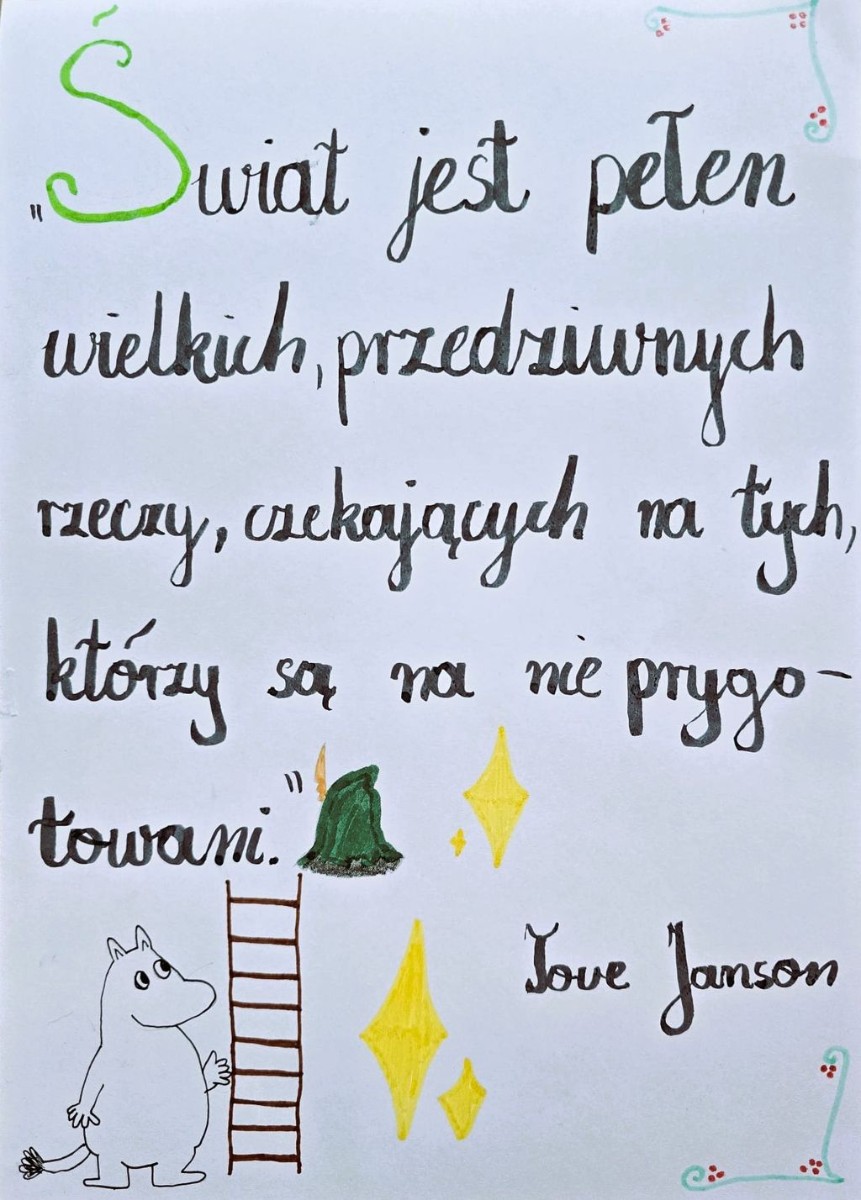 "Świat jest pełen
wielkich, przedziwnych
rzeczy, czekających na tych,
którzy są na nie prygo-
towani."
Tove Janson